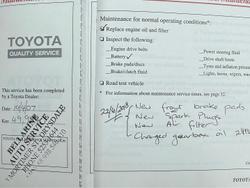 Maintenance for normal operating conditions*:
Replace engine oil and filter
Inspect the following:
Engine drive belts
Battery ✓
Brake pads/discs
Brake/clutch fluid
Power steering fluid
Drive shaft boots
Tyres and inflation pressure
Road test vehicle
For information about maintenance service items, see page 32.
TOYOTA
QUALITY SERVICE
This service has been completed
by a Toyota Dealer:
Date
Km
AUTO SERVICE
- New front brake pads
- New Spark Plugs
- New Air filter
- Changed gearbox oil